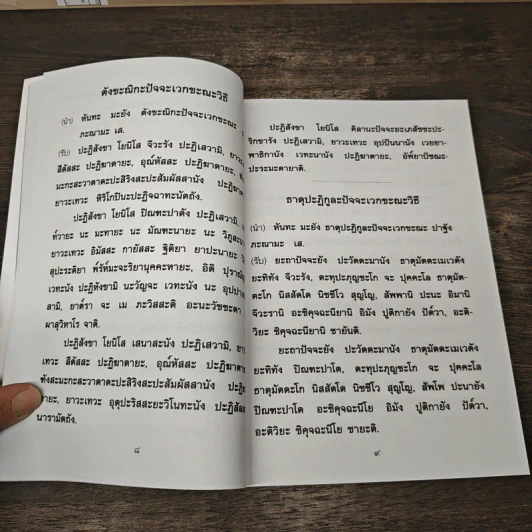 ตังขะณิกะปัจจะเวกขะณะวิธี
(นำ) หันทะ มะยัง ตังขะณิกะปัจจะเวกขะณะ
ภะณามะ เส.
(รับ) ปะฏิสังขา โยนิโส จีวะรัง ปะฏิเสวามิ, ยาวะ
สีตัสสะ ปะฏิฆาตายะ, อุณ๎หัสสะ ปะฏิฆาตายะ,
มะกะสะวาตาตะปะสิริงสะปะสัมผัสสานัง ปะฏิฆา
ยาวะเทวะ หิริโกปินะปะฏิจฉาทะนัตถัง.
ปะฏิสังขา โยนิโส ปิณฑะปาตัง ปะฏิเสวามิ,
ท๎วายะ นะ มะทายะ นะ มัณฑะนายะ นะ วิภูสะ
ยาวะเทวะ อิมัสสะ กายัสสะ ฐิติยา ยาปะนายะ
สุปะระติยา พ๎รัห๎มะจะริยานุคคะหายะ, อิติ ปุราณั
เวทะนัง ปะฏิหังขามิ นะวัญจะ เวทะนัง นะ อุปปา
สามิ, ยาต๎รา จะ เม ภะวิสสะติ อะนะวัชชะตา
ผาสุวิหาโร จาติ.
ปะฏิสังขา โยนิโส เสนาสะนัง ปะฏิเสวามิ, ยาว
เทวะ สีตัสสะ ปะฏิฆาตายะ, อุณ๎หัสสะ ปะฏิฆาตา
ทังสะมะกะสะวาตาตะปะสิริงสะปะสัมผัสสานัง ปะฏิฆา
ตายะ, ยาวะเทวะ อุตุปะริสสะยะวิโนทะนัง ปะฏิสัล
นารามัตถัง.
๘
ปะฏิสังขา โยนิโส คิลานะปัจจะยะเภสัชชะปะ-
ริกขารัง ปะฏิเสวามิ, ยาวะเทวะ อุปปันนานัง เวยยา-
พาธิกานัง เวทะนานัง ปะฏิฆาตายะ, อัพ๎ยาปัชฌะ-
ปะระมะตายาติ.
ธาตุปะฏิกูละปัจจะเวกขะณะวิธี
(นำ) หันทะ มะยัง ธาตุปะฏิกูละปัจจะเวกขะณะ ปาฐัง
ภะณามะ เส.
(รับ) ยะถาปัจจะยัง ปะวัตตะมานัง ธาตุมัตตะเมเวตัง
ยะทิทัง จีวะรัง, ตะทุปะภุญชะโก จะ ปุคคะโล ธาตุมัต-
ตะโก นิสสัตโต นิชชีโว สุญโญ, สัพพานิ ปะนะ อิมานิ
จีวะรานิ อะชิคุจฉะนียานิ อิมัง ปูติกายัง ปัต๎วา, อะติ-
วิยะ ชิคุจฉะนียานิ ชายันติ.
ยะถาปัจจะยัง ปะวัตตะมานัง ธาตุมัตตะเมเวตัง
ยะทิทัง ปิณฑะปาโต, ตะทุปะภุญชะโก จะ ปุคคะโล
ธาตุมัตตะโก นิสสัตโต นิชชีโว สุญโญ, สัพโพ ปะนายัง
ปิณฑะปาโต อะชิคุจฉะนีโย อิมัง ปูติกายัง ปัต๎วา,
อะติวิยะ ชิคุจฉะนีโย ชายะติ.
๙